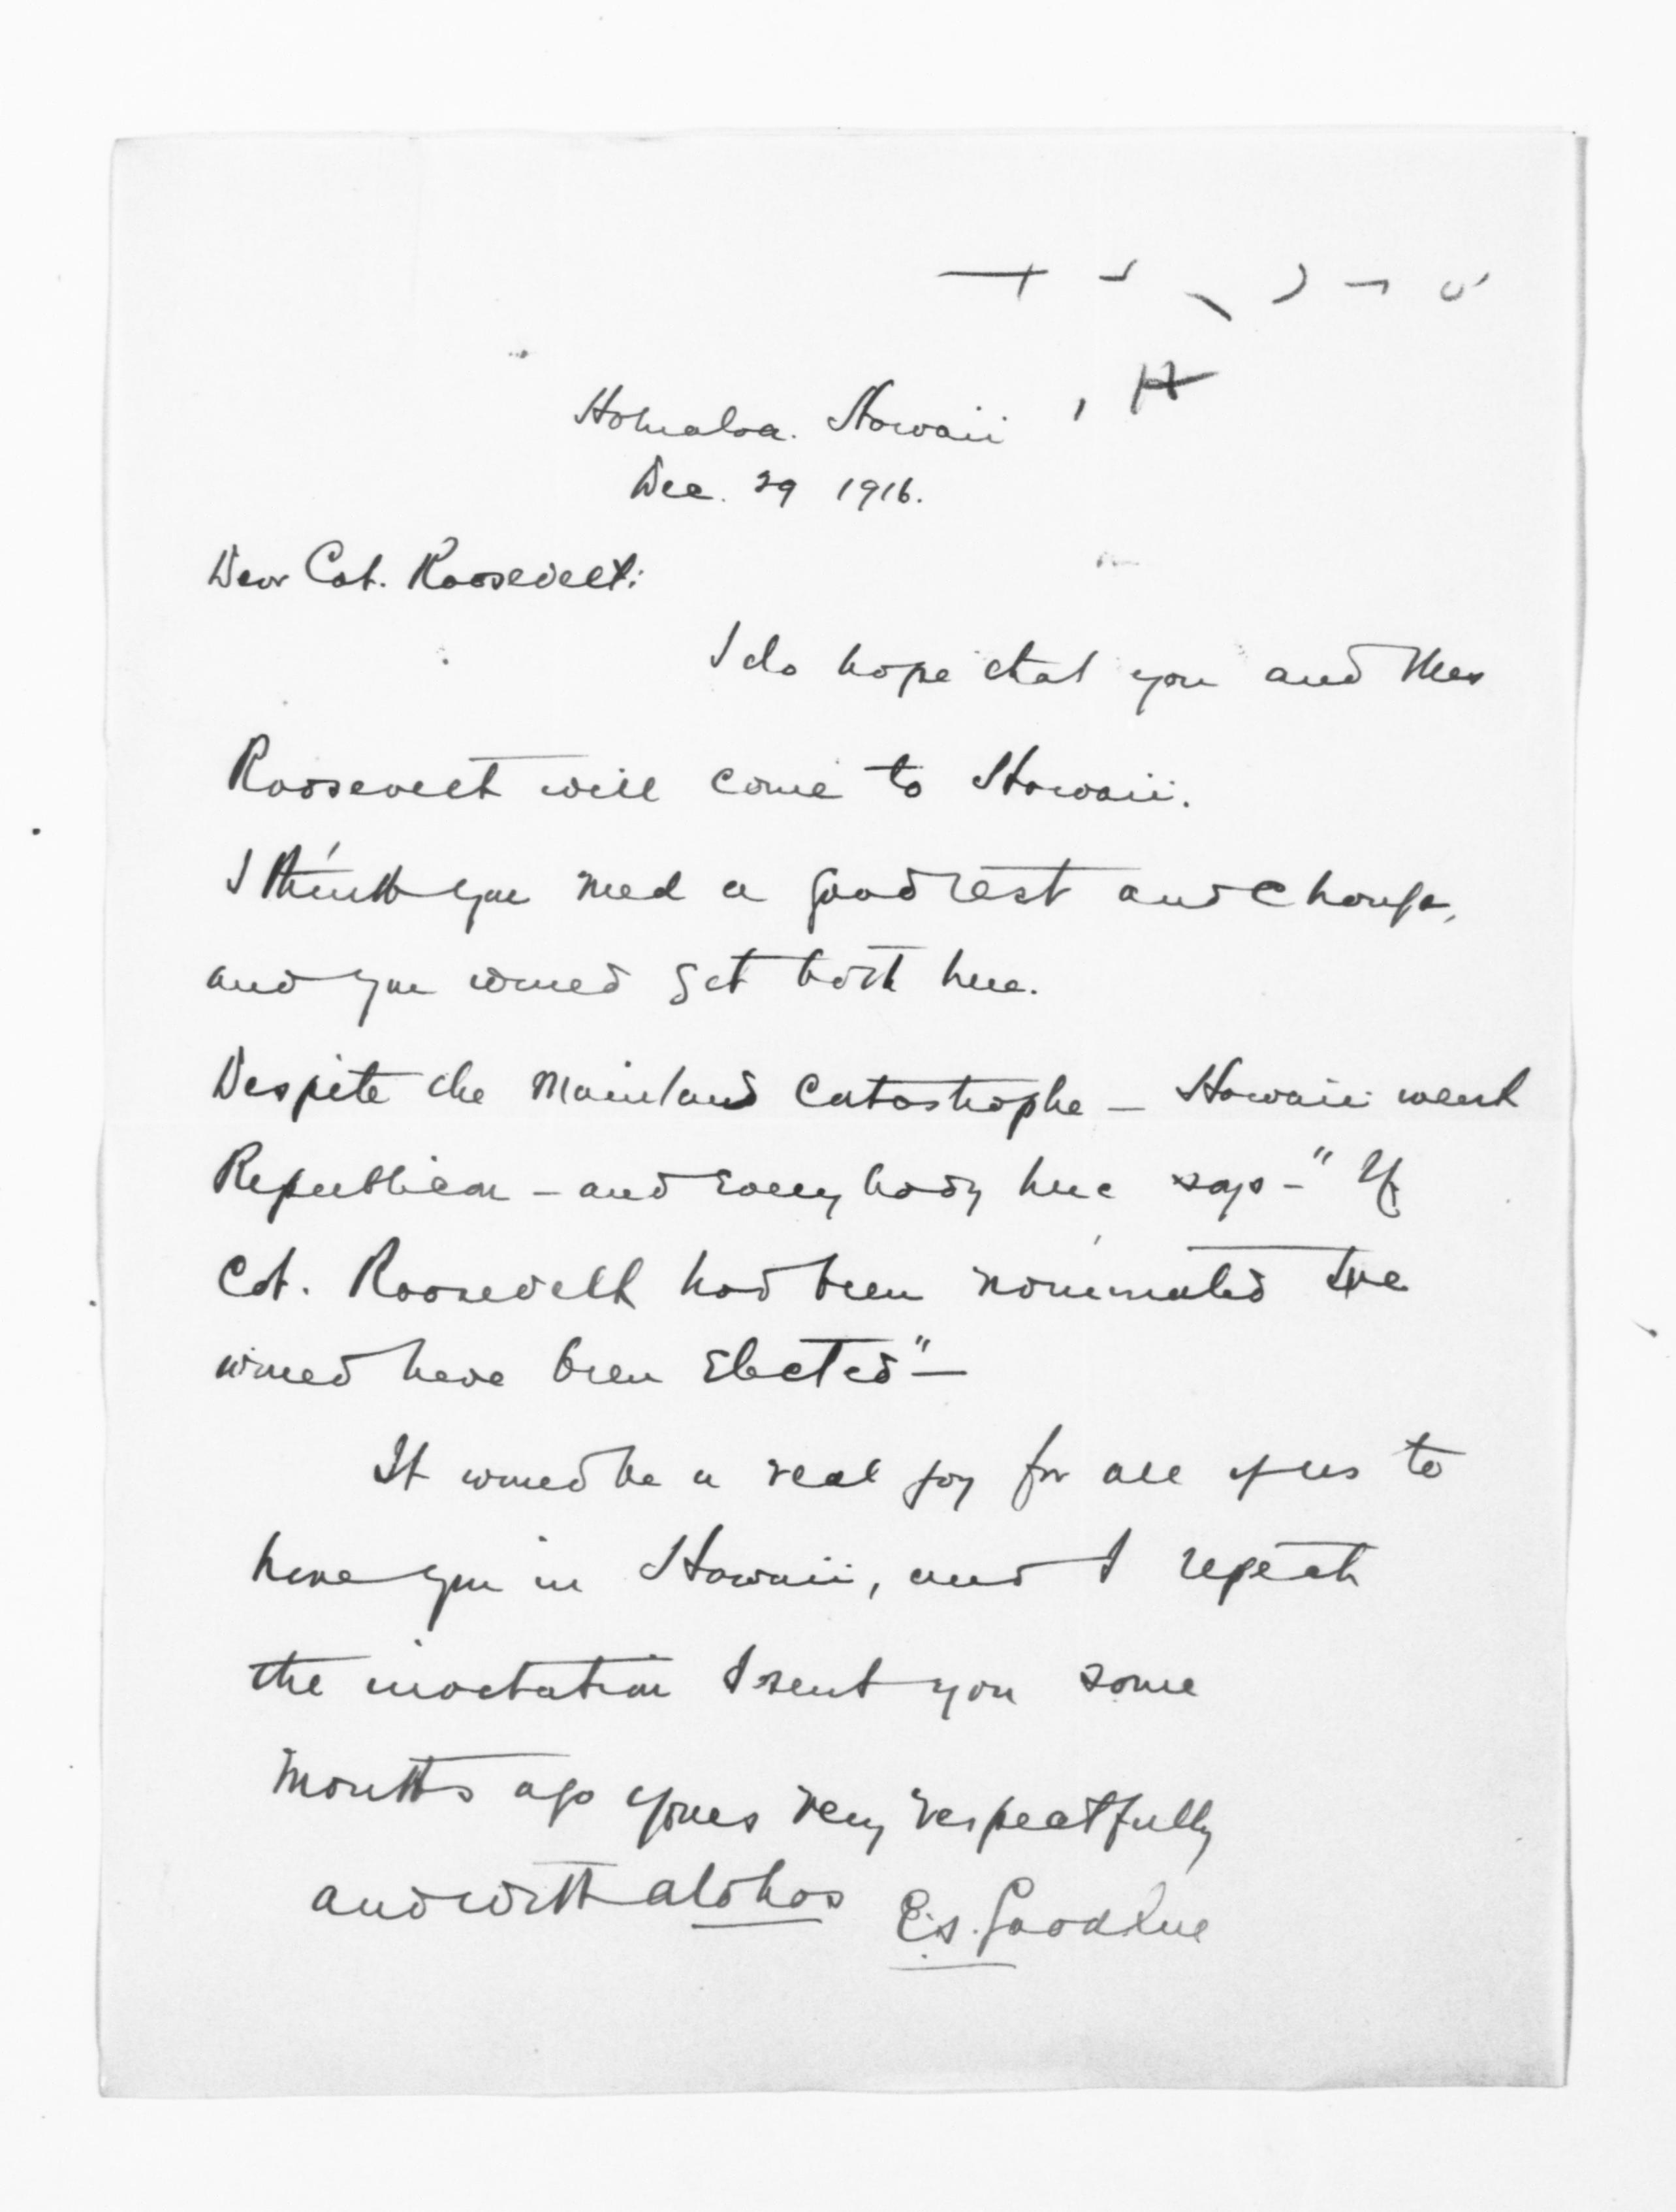 Holualoa. Hawaii
Dec. 29 1916.
Dear Col. Roosevelt:
I do hope that you and Mrs
Roosevelt will come to Hawaii.
I think you need a good rest and change,
and you would get both here.
Despite the Mainland Catastrophe – Hawaii went
Republican – and every body here says – "If
Col. Roosevelt had been nominated he
would have been elected" –
It would be a real joy for all of us to
have you in Hawaii, and I repeat
the invitation I sent you some
months ago yours very respectfully
and with alohas E.S. Goodhue